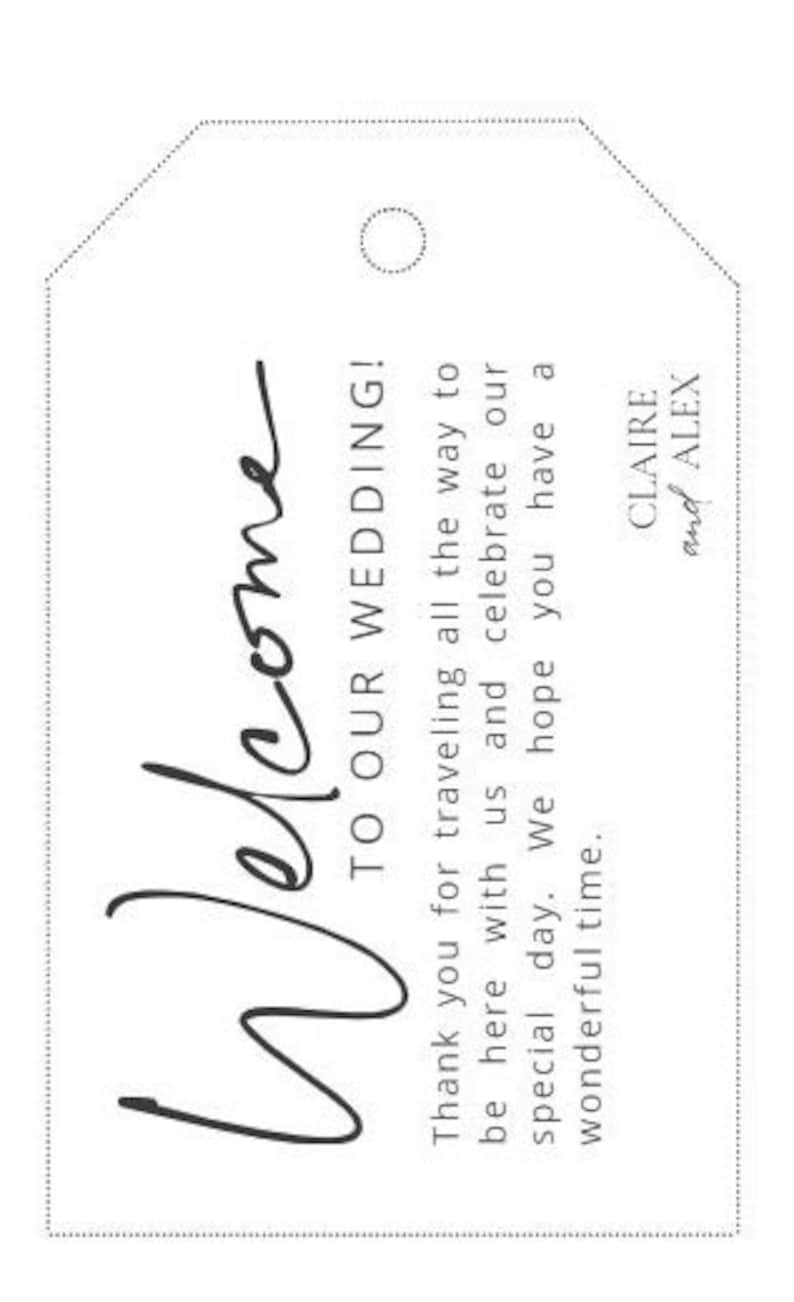 Welcome
TO OUR WEDDING!
Thank you for traveling all the way to
be here with us and celebrate our
special day. We hope you have a
wonderful time.
CLAIRE
and ALEX